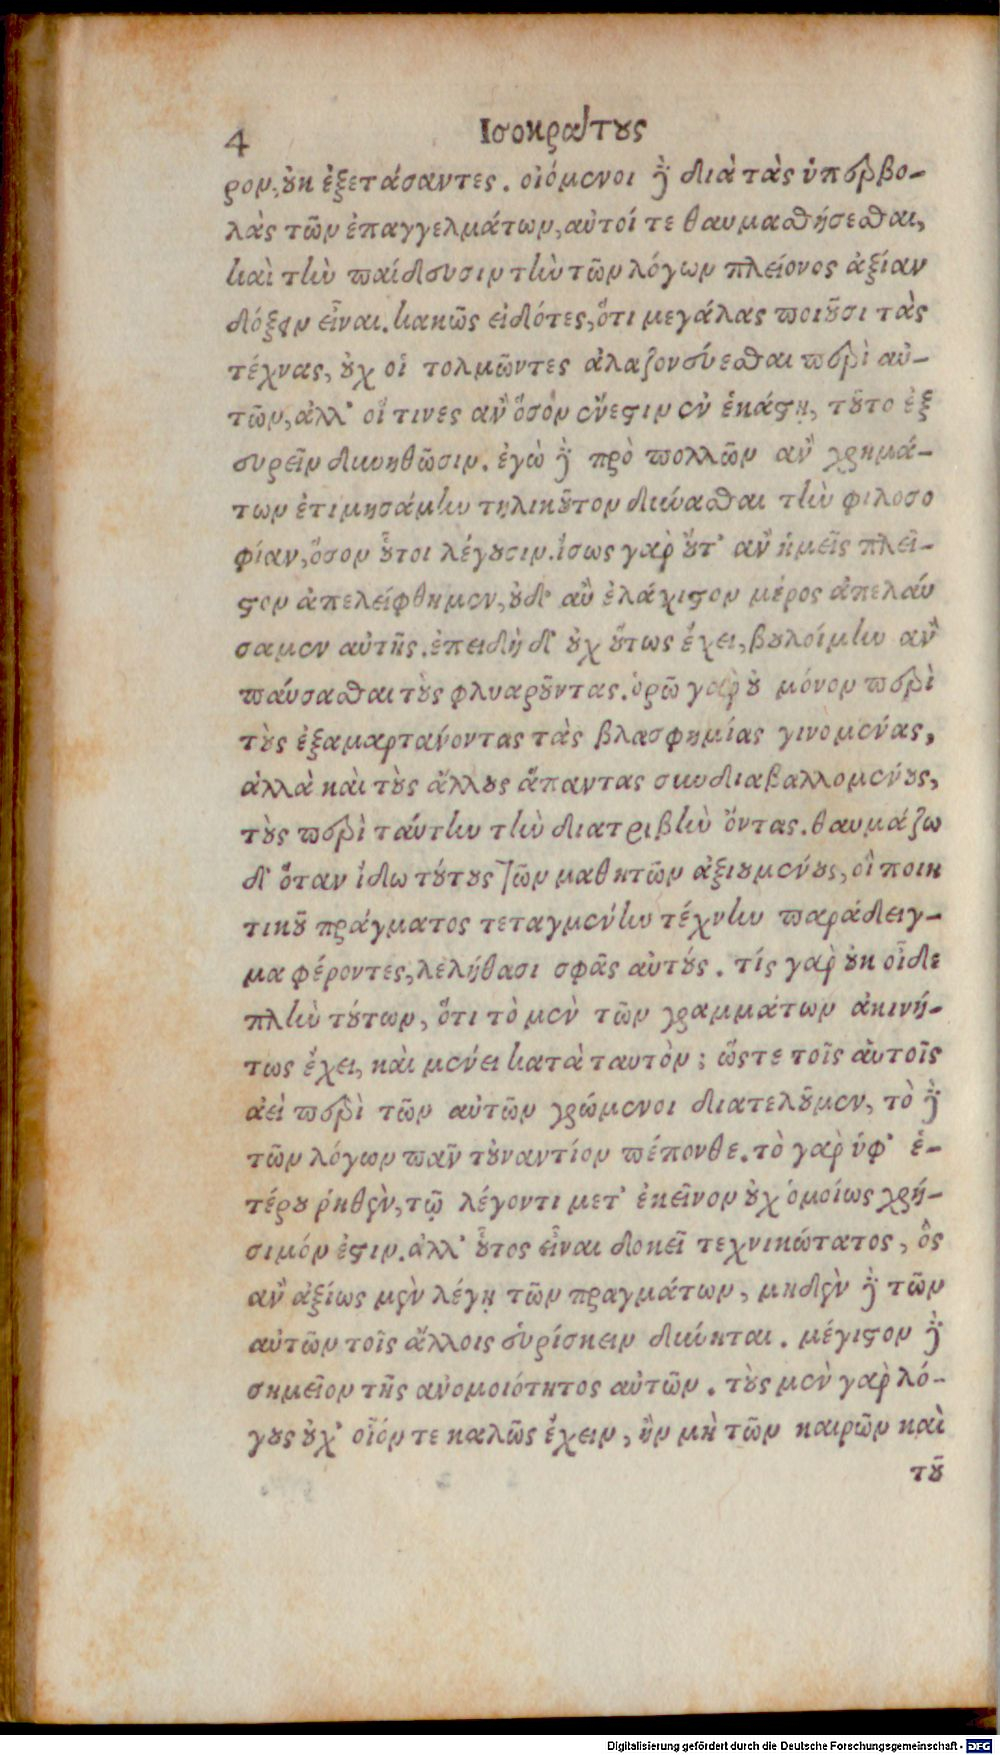 4 Ισοκράτους
ρον, οὐκ ἐξετάσαντες. οἰόμενοι δὲ διὰ τὰς ὑπερβο-
λὰς τῶν ἐπαγγελμάτων, αὐτοί τε θαυμασθήσεσθαι,
καὶ τὴν παίδευσιν τὴν τῶν λόγων πλείονος ἀξίαν
δόξειν εἶναι. κακῶς εἰδότες, ὅτι μεγάλας ποιοῦσι τὰς
τέχνας, οὐχ οἱ τολμῶντες ἀλαζονεύεσθαι περὶ αὐ-
τῶν, ἀλλ' οἵ τινες ἂν ὅσον ἔνεστιν ἐν ἑκάστῃ, τοῦτο ἐξ
ευρεῖν δυνηθῶσιν. ἐγὼ δὲ πρὸ πολλῶν ἂν χρημά-
των ἐτιμησάμην τηλικοῦτον δύνασθαι τὴν φιλοσο
φίαν, ὅσον οὗτοι λέγουσιν. ἴσως γὰρ οὔτ' ἂν ἡμεῖς πλεῖ-
στον ἀπελείφθημεν, οὐδ' αὖ ἐλάχιστον μέρος ἀπελαύ
σαμεν αὐτῆς. ἐπειδὴ δ' οὐχ οὕτως ἔχει, βουλοίμην ἂν
παύσασθαι τοὺς φλυαροῦντας. ὁρῶ γὰρ οὐ μόνον περὶ
τοὺς ἐξαμαρτάνοντας τὰς βλασφημίας γινομένας,
ἀλλὰ καὶ τοὺς ἄλλους ἅπαντας συνδιαβαλλομένους,
τοὺς περὶ ταύτην τὴν διατριβὴν ὄντας. θαυμάζω
δ' ὅταν ἴδω τούτους τῶν μαθητῶν ἀξιουμένους, οἳ ποιη
τικοῦ πράγματος τεταγμένην τέχνην παράδειγ-
μα φέροντες, λελήθασι σφᾶς αὐτούς. τίς γὰρ οὐκ οἶδε
πλὴν τούτων, ὅτι τὸ μὲν τῶν γραμμάτων ἀκινή-
τως ἔχει, καὶ μένει κατὰ ταυτὸν; ὥστε τοῖς αὐτοῖς
ἀεὶ περὶ τῶν αὐτῶν χρώμενοι διατελοῦμεν, τὸ δὲ
τῶν λόγων πᾶν τοὐναντίον πέπονθε. τὸ γὰρ ὑφ' ἑ-
τέρου ῥηθὲν, τῷ λέγοντι μετ' ἐκεῖνον οὐχ ὁμοίως χρή-
σιμόν ἐστιν. ἀλλ' οὗτος εἶναι δοκεῖ τεχνικώτατος, ὃς
ἂν ἀξίως μὲν λέγῃ τῶν πραγμάτων, μηδὲν δὲ τῶν
αὐτῶν τοῖς ἄλλοις εὑρίσκειν δύνηται. μέγιστον δὲ
σημεῖον τῆς ἀνομοιότητος αὐτῶν. τοὺς μὲν γὰρ λό-
γους οὐχ' οἷόν τε καλῶς ἔχειν, ἢν μὴ τῶν καιρῶν καὶ
τοῦ
Digitalisierung gefördert durch die Deutsche Forschungsgemeinschaft - DFG